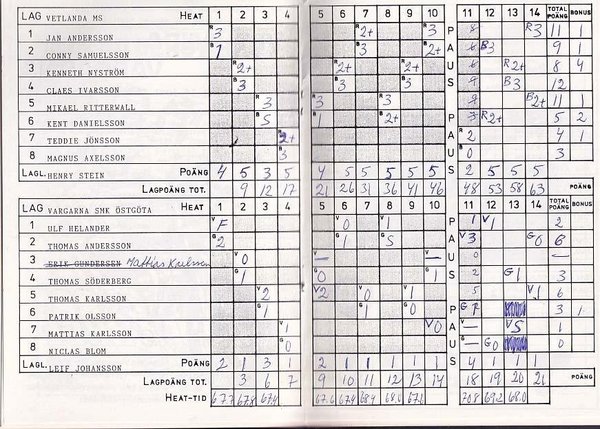 LAG VETLANDA MS HEAT 1 2 3 4 5 6 7 8 9 10 PAUS 11 12 13 14 TOTAL POÄNG BONUS
1 JAN ANDERSSON R 3 R 2+ R 2+ R3 11 1
2 CONNY SAMUELSSON B 1 B 3 B 3 B3 9 1
3 KENNETH NYSTRÖM R 2+ R 2+ R 2+ R2+ 8 4
4 CLAES IVARSSON B 3 B 3 B 3 B3 12
5 MIKAEL RITTERWALL R 3 R 3 R 3 B2+ 11 1
6 KENT DANIELSSON B B 1 B 2+ R2+ 5 2
7 TEDDIE JÖNSSON R 2+ R 2 4 1
8 MAGNUS AXELSSON B 3 B 0 3
LAGL. HENRY STEIN POÄNG 4 5 3 5 4 5 5 5 5 5 2 5 5 5
LAGPOÄNG TOT. 9 12 17 21 26 31 36 41 46 48 53 58 63 POÄNG
LAG VARGARNA SMK ÖSTGÖTA HEAT 1 2 3 4 5 6 7 8 9 10 PAUS 11 12 13 14 TOTAL POÄNG BONUS
1 ULF HELANDER V F V 0 V 0 V1 2
2 THOMAS ANDERSSON G 2 G 1 G V 3 G0 6
3 ERIK GUNDERSEN Mattias Karlsson V 0 V — V — —
4 THOMAS SÖDERBERG G 1 G 0 G 1 G1 3
5 THOMAS KARLSSON V 2 V 2 V 0 V 1 V1 6
6 PATRIK OLSSON G 1 G 1 G 0 G 3
7 MATTIAS KARLSSON V 1 V 0 V — 1
8 NICLAS BLOM G 0 G — G0 0
LAGL. LEIF JOHANSSON POÄNG 2 1 3 1 2 1 1 1 1 1 4 1 1 1
LAGPOÄNG TOT. 3 6 7 9 10 11 12 13 14 18 19 20 21 POÄNG
HEAT-TID 67.4 68.0 70.8 69.2 68.0